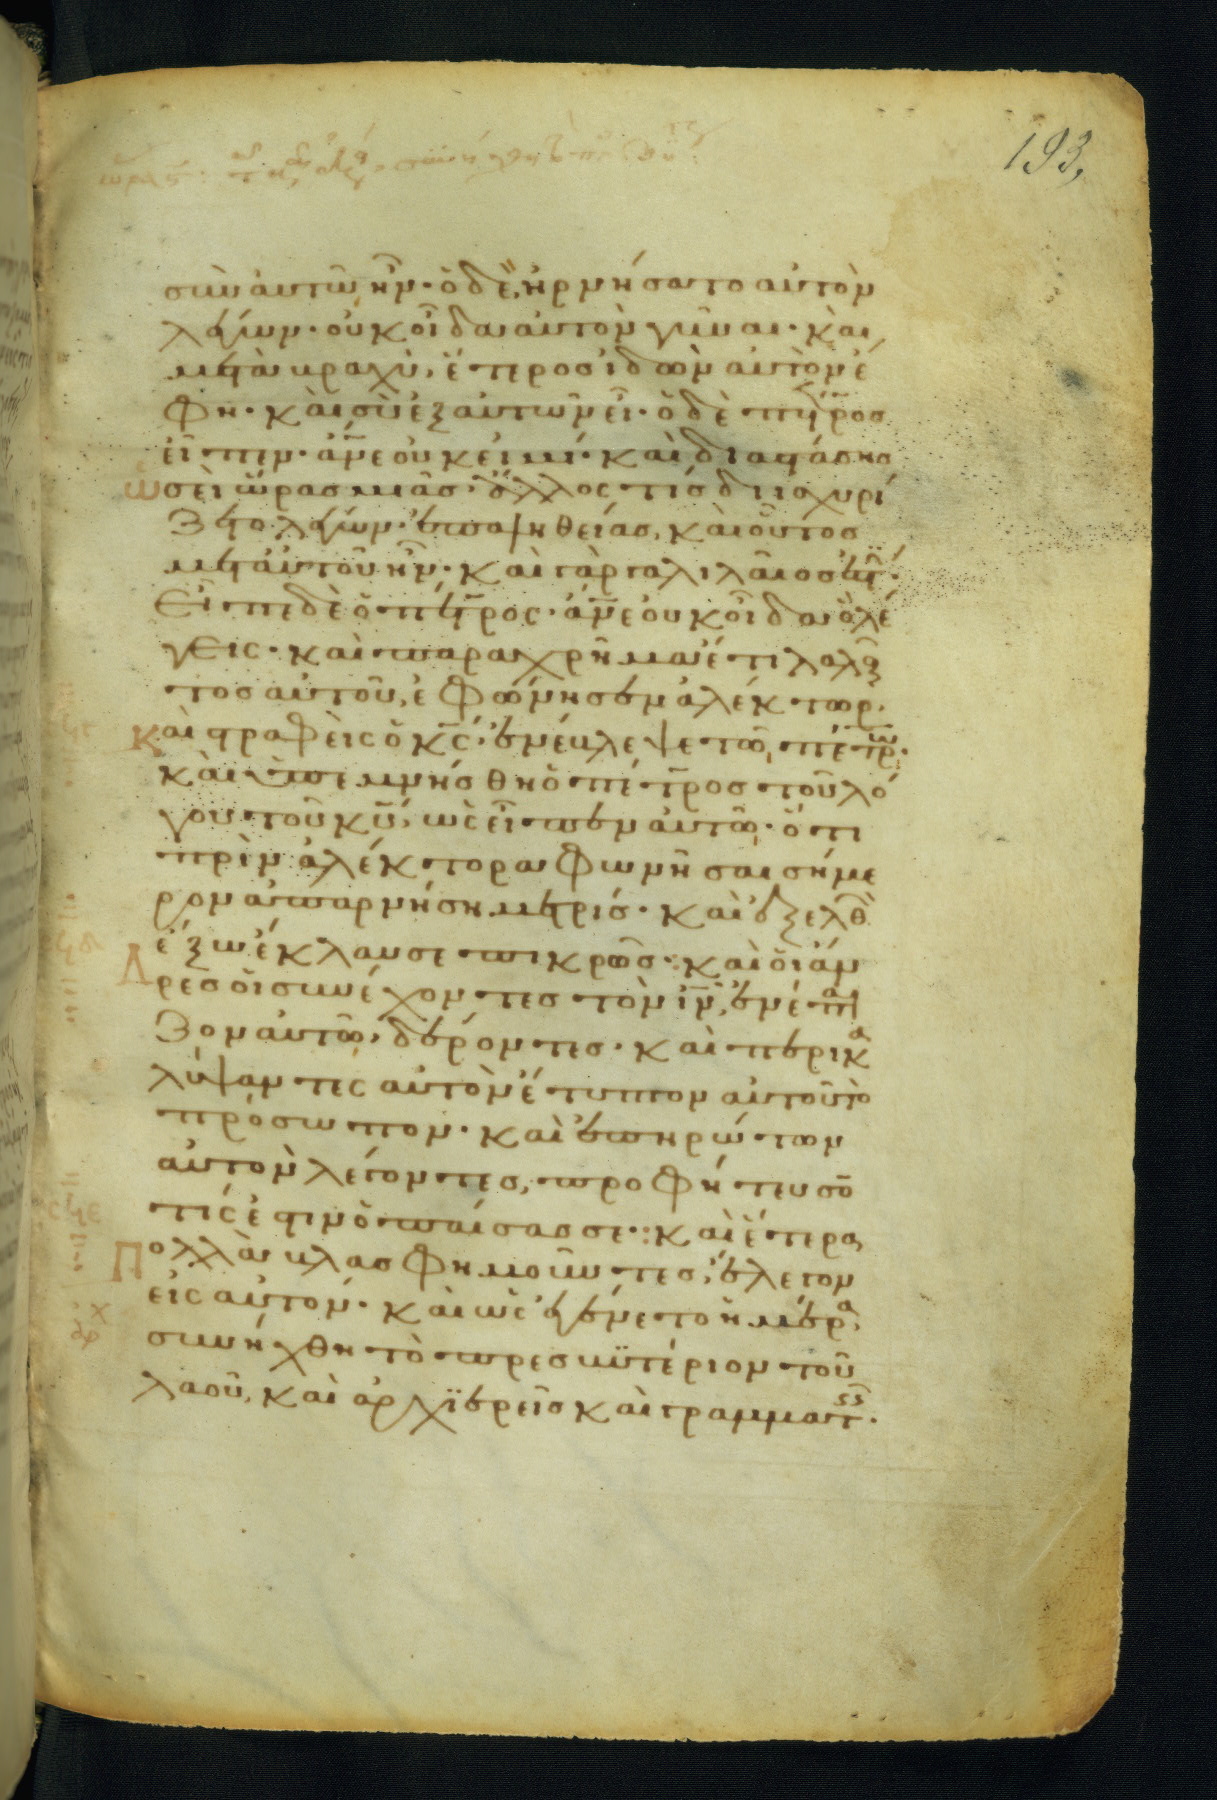 193,
σὺν αὐτῶ ἦν· ὁ δὲ ἠρνήσατο αὐτὸν
λέγων· οὐκ οἶδα αὐτὸν γύναι· καὶ
μετὰ βραχὺ, ἕτερος ἰδὼν αὐτὸν ἔ
φη· καὶ σὺ ἐξ αὐτῶν εἶ· ὁ δὲ πέτρος
εἶπεν· ἄν̅ε οὐκ εἰμί· καὶ διαστάσης
ὡσεὶ ὥρας μιᾶς· ἄλλος τίς διϊσχυρί
ζετο λέγων· ἐπαληθείας, καὶ οὗτος
μετ αὐτοῦ ἦν· καὶ γὰρ γαλιλαῖος ἐστϊ·
Εἶπε δὲ ὁ πέτρος· ἄν̅ε οὐκ οἶδα ὃ λέ
γεις· καὶ παραχρῆμα ἔτι λαλοῦν
τος αὐτοῦ, ἐφώνησεν ἀλέκτωρ·
Καὶ στραφεὶς ὁ κ̅ς· ἐνέβλεψε τῶ πέτρω·
καὶ ὑπεμνήσθη ὁ πέτρος τοῦ λό
γου τοῦ κ̅υ, ὡς εἶπεν αὐτῶ· ὅτι
πρὶν ἀλέκτορα φωνῆσαι σήμε
ρον ἀπαρνήση με τρίς· καὶ ἐξελθὼ
ἔξω ἔκλαυσε πικρῶς: καὶ οἱ ἄν
Δρες οἱ συνέχοντες τὸν ι̅ν, ἐνέπαι
ζον αὐτῶ, δέροντες· καὶ περικα
λύψαντες αὐτὸν ἔτυπτον αὐτοῦ τὸ
πρόσωπον· καὶ ἐπηρώτων
αὐτὸν λέγοντες, προφήτευσο̅
τίς ἐστιν ὁ παίσας σε: καὶ ἕτερα
Πολλὰ βλασφημοῦντες, ἔλεγον
εἰς αὐτόν· καὶ ὡς ἐγένετο ἡμέρα,
συνήχθη τὸ πρεσβυτέριον τοῦ
λαοῦ, καὶ ἀρχϊερεῖς καὶ γραμματ·